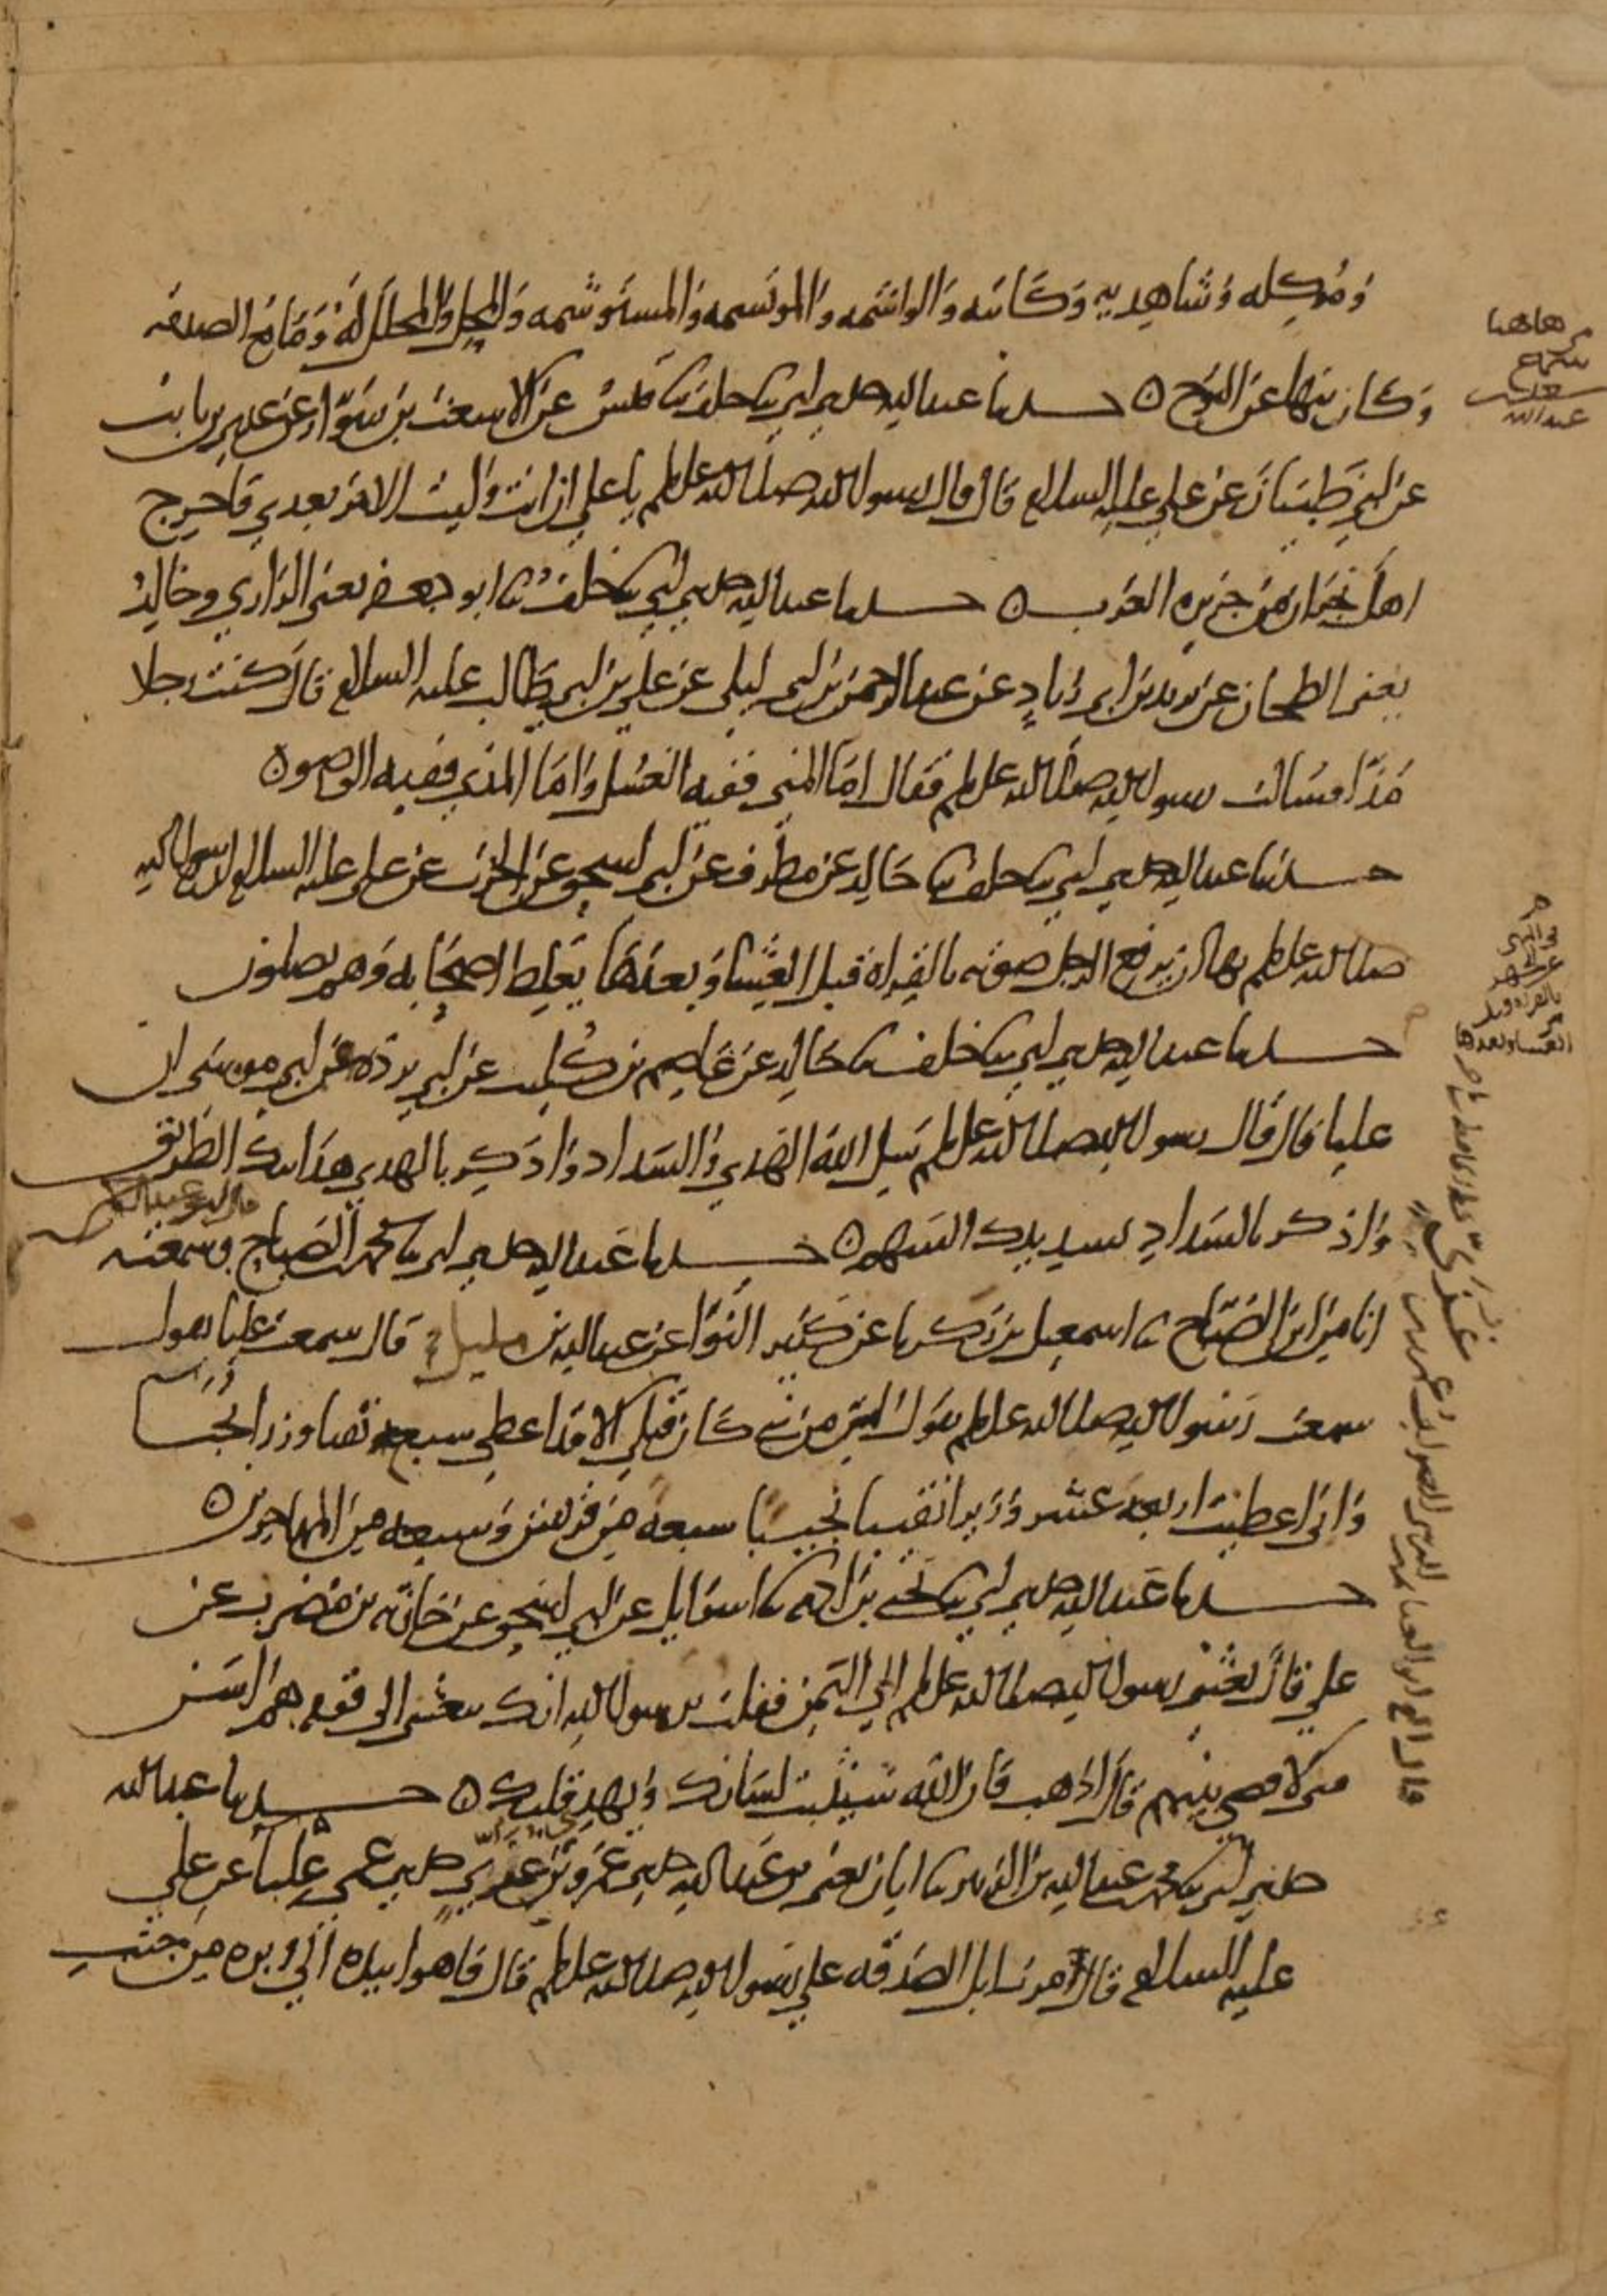 وموكله وشاهديه وكاتبه والواشمه والموتشمه والمستوشمه والمحل والمحلل له ومانع الصدقه
وكان ينها عن النوح ه حدثنا عبد الله حدثني ابي ثنا خلف ثنا قيس عن الاشعث بن سوار عن عدي بن ثابت
عن ابي ظبيان عن علي عليه السلام قال قال رسول الله صلى الله عليه وسلم يا علي ان انت وليت الامر بعدي فاخرج
اهل نجران من جزيره العرب ه حدثنا عبد الله حدثني ابي ثنا خلف ثنا ابو جعفر يعني الرازي وخالد
يعني الطحان عن يزيد بن ابي زياد عن عبد الرحمن بن ابي ليلى عن علي بن ابي طالب عليه السلام قال كنت رجلا
مذا فسالت رسول الله صلى الله عليه وسلم فقال اما المني ففيه الغسل واما المذي ففيه الوضو ه
حدثنا عبد الله حدثني ابي ثنا خلف ثنا خالد عن مطرف عن ابي اسحق عن الحرث عن علي عليه السلام ان رسول الله
صلى الله عليه وسلم نها ان يرفع الرجل صوته بالقراة قبل العشا وبعدها يغلط اصحابه وهم يصلون
حدثنا عبد الله حدثني ابي ثنا خلف ثنا خالد عن عاصم بن كليب عن ابي برده عن ابي موسى ان
عليا قال قال رسول الله صلى الله عليه وسلم سل الله الهدي والسداد واذكر بالهدي هدايتك الطريق
واذكر بالسداد تسديدك السهم ه حدثنا عبد الله حدثني ابي ثنا محمد بن الصباح قال ابو عبد الرحمن وسمعته
انا من ابن الصباح ثنا اسمعيل بن زكريا عن كثير النوا عن عبد الله بن مليل قال سمعت عليا يقول
سمعت رسول الله صلى الله عليه وسلم يقول ليس من نبي كان قبلي الا قد اعطي سبعه نقبا وزرا نجبا
واني اعطيت اربعه عشر وزيرا نقيبا نجيبا سبعه من قريش وسبعه من المهاجرين ه
حدثنا عبد الله حدثني ابي ثنا يحيى بن ادم ثنا اسرايل عن ابي اسحق عن حارثه بن مضرب عن
علي قال بعثني رسول الله صلى الله عليه وسلم الي اليمن فقلت يرسول الله انك تبعثني الى قوم هم اسن
مني لاقضي بينهم قال اذهب فان الله سيثبت لسانك ويهدي قلبك ه حدثنا عبد الله
حدثني ابي ثنا محمد بن عبد الله بن الزبير ثنا ابان يعني بن عبد الله حدثني عمرو بن غزي حدثني عمي علبا عن علي
عليه السلام قال مرت ابل الصدقه علي رسول الله صلى الله عليه وسلم قال فاهوا بيده الي وبره من جنب
من هاهنا
سماع
عبد الله
بالقراه قبل
العشا وبعدها